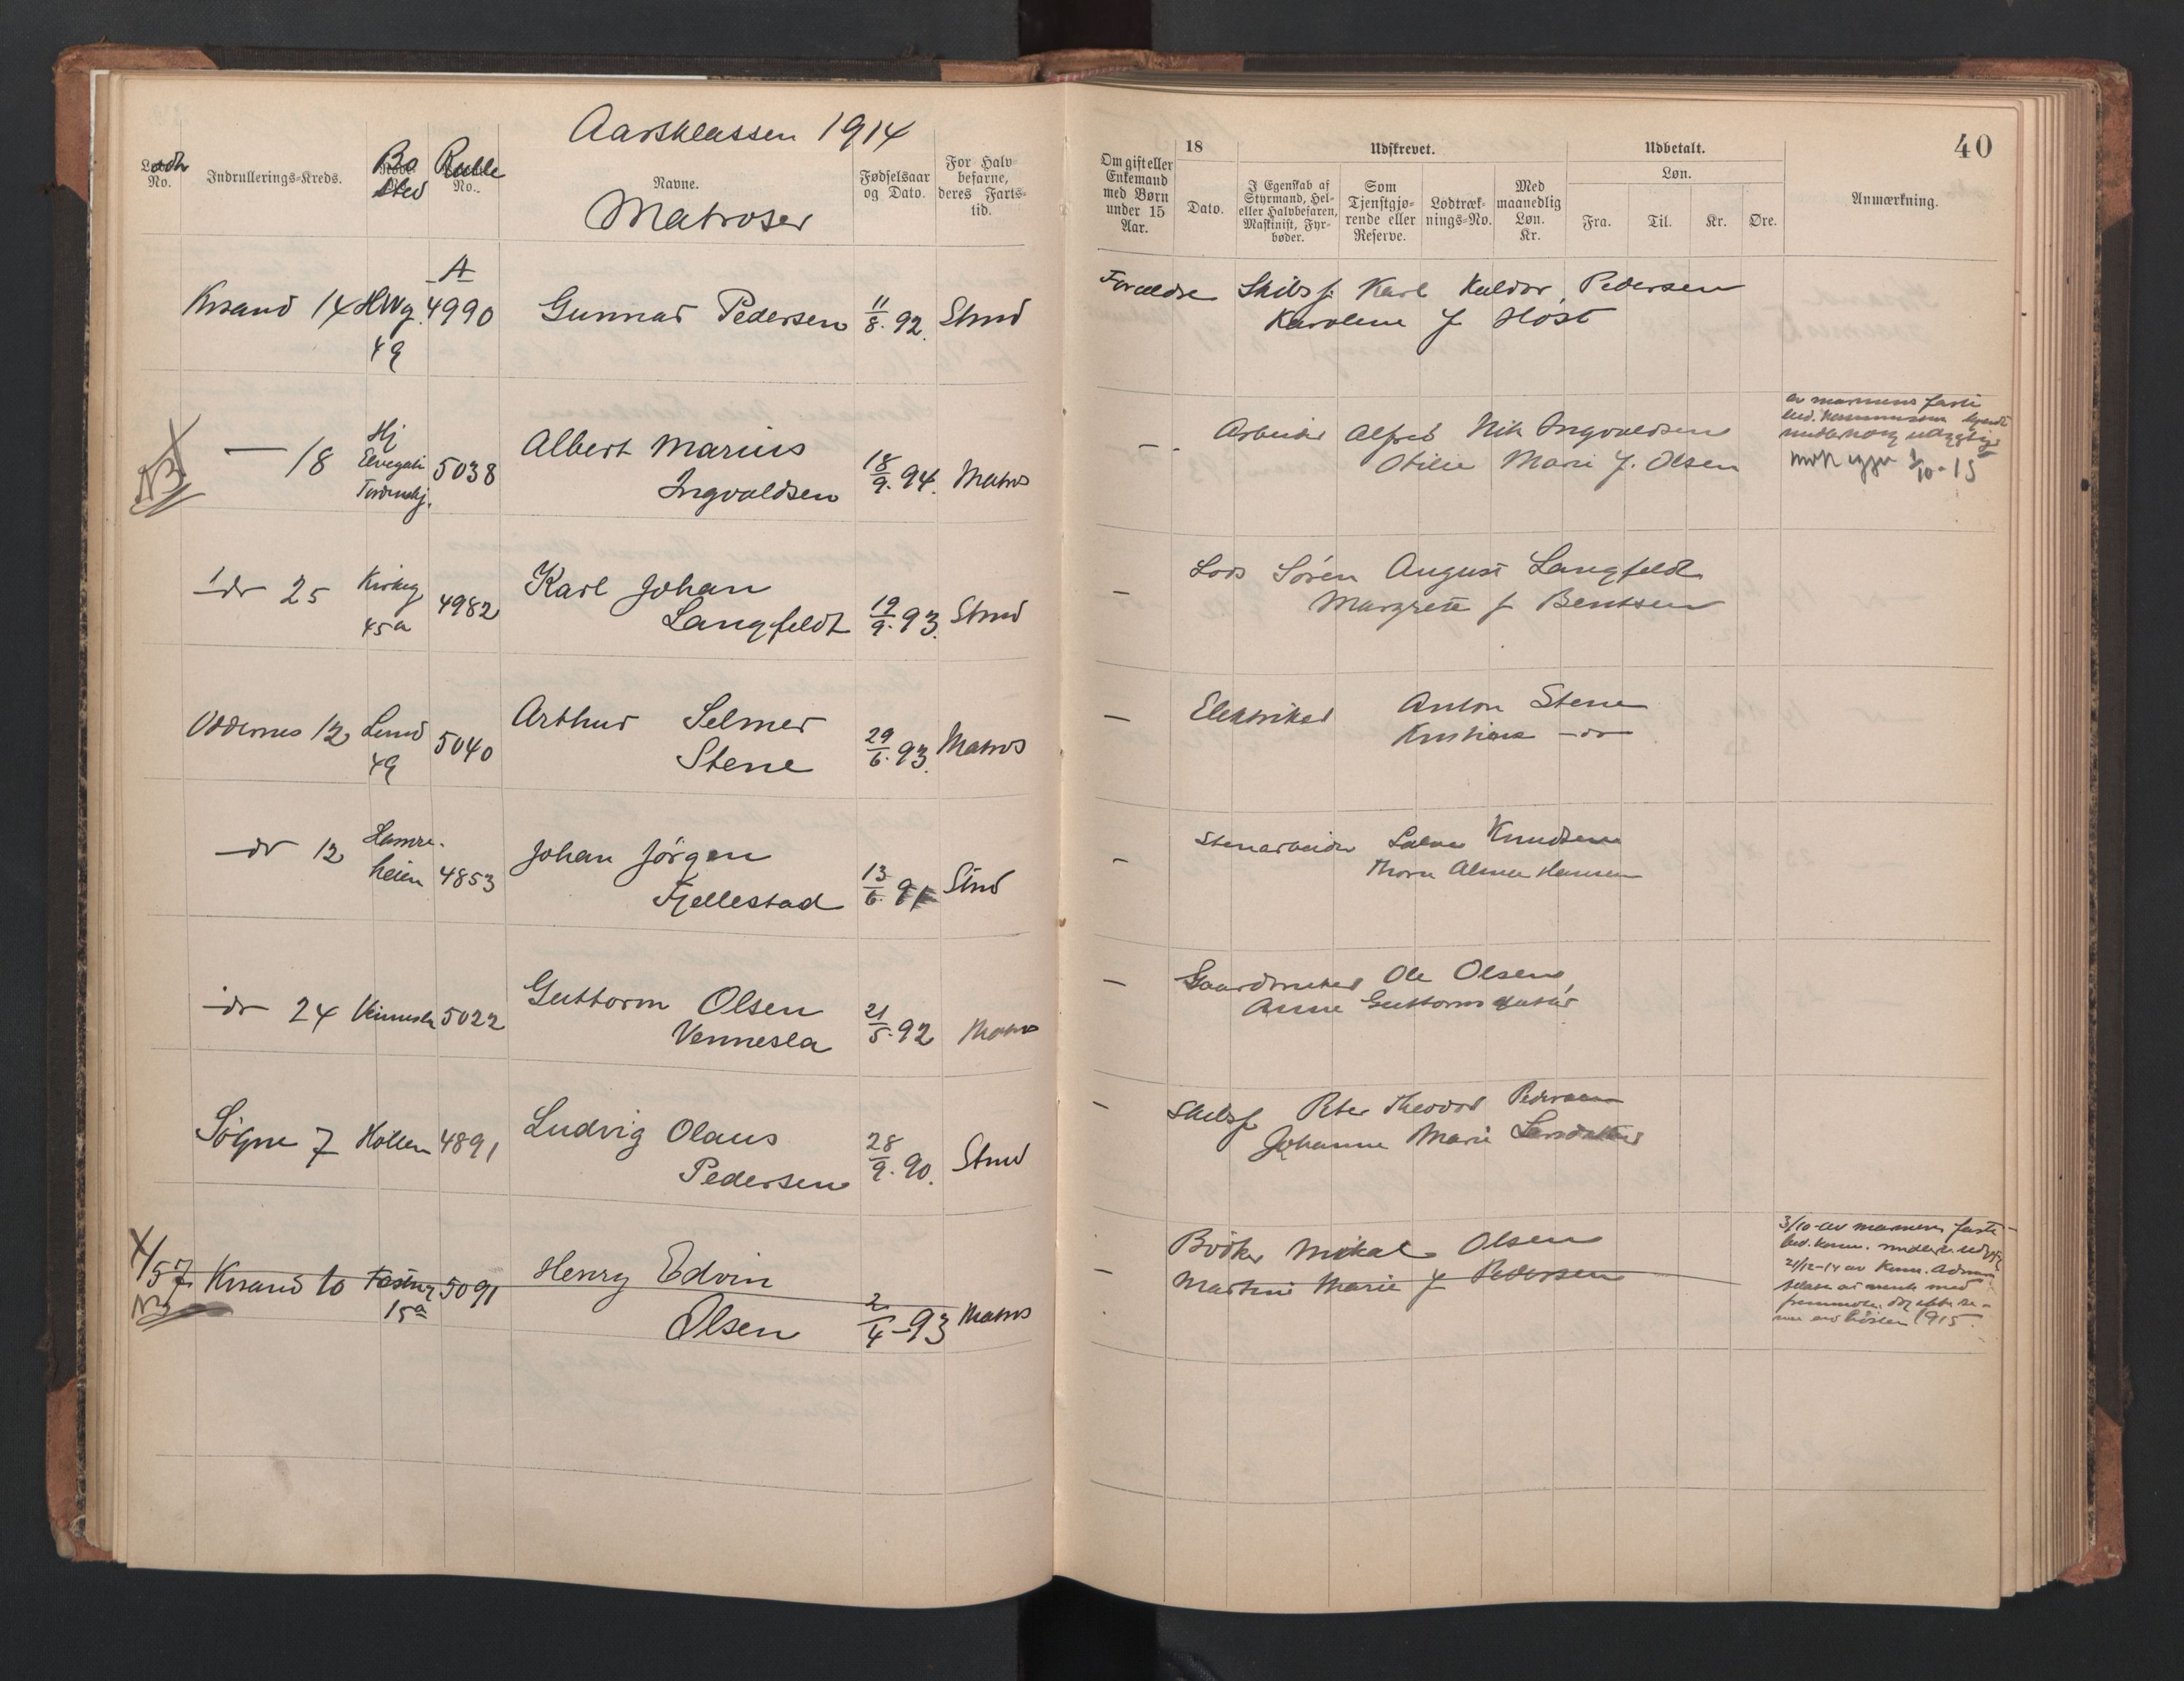 Aarsklassen 1914
40
Lodtr. No.
Indrullerings-Kreds.
Bosted
Rulle No.
Navne.
Matroser
Fødselsaar og Dato.
For Halvbefarne, deres Fartstid.
Om gift eller Enkemand med Børn under 15 Aar.
18
Dato.
Udskrevet.
I Egenskab af Styrmand, Hel- eller Halvbefaren, Maskinist, Fyrbøder.
Som Tjenstgjørende eller Reserve.
Lodtræknings-No.
Med maanedlig Løn. Kr.
Udbetalt.
Løn.
Fra.
Til.
Kr.
Øre.
Anmærkning.
A
Krsand 14 HWg. 4990 Gunnar Pedersen 11/8. 92. Stmd
49
Forældre Skibsf. Karl Kaldor Pedersen
Karoline f Høst
— 18 Hj Elvegate Tordenskj. 5038 Albert Marius
Ingvaldsen 18/9. 94. Matros
— Arbeider Alfred Nik Ingvaldsen
Otilie Marie f. Olsen
av mønstrings
1/10-15
—dr 25 Kirkeg 45a 4982 Karl Johan
Langfeldt 19/9. 93. Stmd
— Lods Søren August Langfeldt
Margrete f Bentsen
Oddernes 12 Lund 49 5040 Arthur Selmer
Stene 29/6. 93. Matros
— Elektriker Anton Stene
Kristiane —dr
—dr 12 Hamreheien 4853 Johan Jörgen
Fjellestad 13/6. 91 Stmd
— Stenarbeider Salve Knudsen
Thora Alma Hansen
—dr 24 Vennesla 5022 Guttorm Olsen
Vennesla 21/5. 92 Matros
— Gaardbruker Ole Olsen,
Anne Guttormsdatter
Søgne 7 Høllen 4891 Ludvig Olaus
Pedersen 28/9. 90. Stmd
— Skibsf Peter Theodor Pedersen
Johanne Marie Larsdatter
X/57 Krsand 10 Fæstng 15a 5091 Henry Edvin
Olsen 2/4-93 Matros
— Bødker Mikal Olsen
Martine Marie f Pedersen
3/10-av
21/12-14 av Kom. Adm.
høsten 1915.